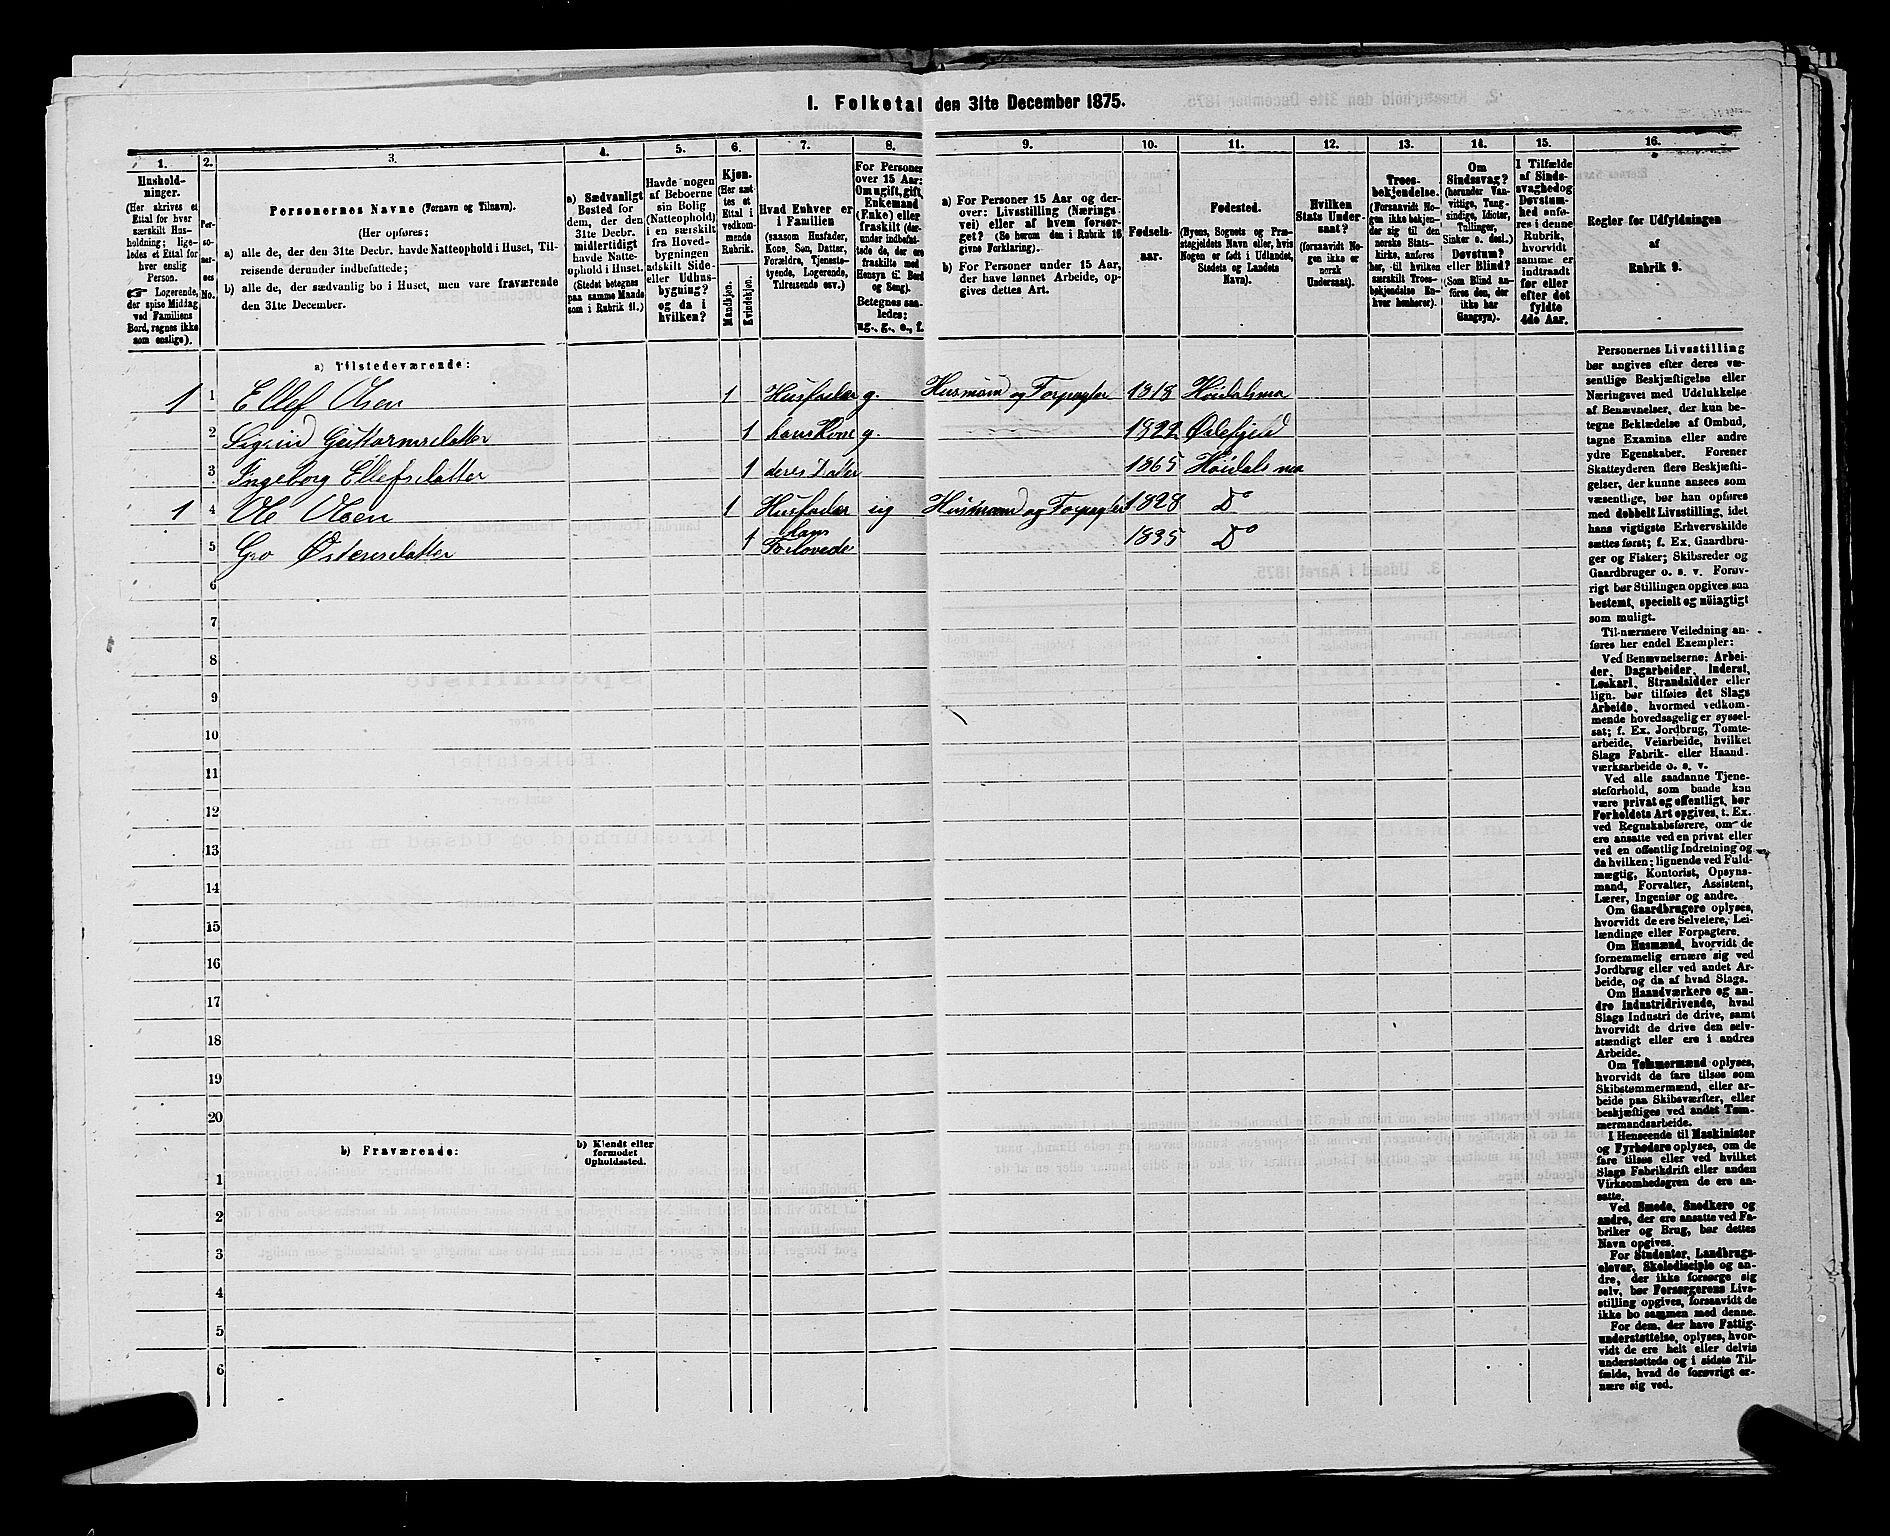 I. Folketal den 31te December 1875.
1. 2. 3. 4. 5. 6. 7. 8. 9. 10. 11. 12. 13. 14. 15. 16.
Husholdninger.
(Her skrives et
Ettal for hver
særskilt Husholdning;
ligeledes et Ettal for
hver enslig
Person.
☞ Logerende,
der spise Middag
ved Familiens
Bord, regnes ikke
som enslige).
Personernes No.
Personernes Navne (Fornavn og Tilnavn).
(Her opføres:
a) alle de, der den 31te Decbr. havde Natteophold i Huset, Tilreisende derunder indbefattede;
b) alle de, der sædvanlig bo i Huset, men vare fraværende
den 31te December.
a) Sædvanligt
Bosted for
dem, der den
31te Decbr.
midlertidigt
havde Natteophold i Huset.
(Stedet betegnes
paa samme Maade
som i Rubrik 11.)
Havde nogen
af Beboerne
sin Bolig
(Natteophold)
i en særskilt
fra Hovedbygningen
adskilt Side- eller Udhusbygning?
og da i
hvilken?
Kjøn.
(Her sættes et
Ettal i
vedkommende
Rubrik.
Mandkjøn.
Kvindekjøn.
Hvad Enhver er
i Familien
(saasom Husfader,
Kone, Søn, Datter,
Forældre, Tjenestetyende, Logerende,
Tilreisende osv.)
For Personer
over 15 Aar:
Om ugift, gift,
Enkemand
(Enke) eller
fraskilt (derunder indbefattede de, der ere
fraskilte med
Hensyn til Bord
og Seng).
Betegnes saaledes:
ug., g., e., f.
a) For Personer 15 Aar og derover: Livsstilling (Næringsvei) eller af hvem forsørget? (Se herom den i Rubrik 16
givne Forklaring).
b) For Personer under 15 Aar,
der have lønnet Arbeide, opgives dettes Art.
Fødselsaar.
Fødested.
(Byens, Sognets og Præstegjeldets Navn eller, hvis
Nogen er født i Udlandet,
Stedets og Landets
Navn).
Hvilken
Stats Undersaat?
(forsaavidt Nogen ikke er
norsk
Undersaat).
Troesbekjendelse.
(Forsaavidt Nogen ikke bekjender sig til den
norske Statskirke, anføres
her, til hvilken
særskilt Troesbekjendelse Enhver henhører).
Om
Sindssvag?
(herunder Vanvittige, Tungsindige, Idioter,
Tullinger,
Sinker o. desl.)
Døvstum?
eller Blind?
(Som Blind anføres den, der
ikke har
Gangsyn).
I Tilfælde
af Sindssvaghed og
Døvstumhed anføres i denne
Rubrik,
hvorvidt
samme er
indtraadt
før eller
efter det
fyldte
4de Aar.
Regler for Udfyldningen
af
Rubrik 9.
a) Tilstedeværende:
1 1 Ellef Olsen 1 Husfader g. Husmand og Forpagter 1818 Høidalsmo
2 Sigrid Guttormsdatter 1 hans Kone g. 1822 Ødefjeld
3 Ingeborg Ellefsdatter 1 deres Dater 1865 Høidalsmo
1 4 Ole Olsen 1 Husfader ug Husmand og Forpagter 1828 Do
5 Gro Østensdatter 1 hans Forlovede 1835 Do
6
7
8
9
10
11
12
13
14
15
16
17
18
19
20
b) Fraværende:
b) Kjendt eller
formodet
Opholdssted.
1
2
3
4
5
6
Personernes Livsstilling
bør angives efter deres væsentlige Beskjæftigelse eller
Næringsvei med Udelukkelse
af Benævnelser, der kun betegne Beklædelse af Ombud,
tagne Examina eller andre
ydre Egenskaber. Forener
Skatteyderen flere Beskjæftigelser, der kunne ansees som
væsentlige, bør han opføres
med dobbelt Livsstilling, idet
hans vigtigste Erhvervskilde
sættes først; f. Ex. Gaardbruger og Fisker; Skibsreder og
Gaardbruger o. s. v. Forøvrigt bør Stillingen opgives saa
bestemt, specielt og nöiagtigt
som muligt.
Til nærmere Veiledning anføres her endel Exempler:
Ved Benævnelserne: Arbeider, Dagarbeider, Inderst,
Løskarl, Strandsidder eller
lign. bør tilføies det Slags
Arbeide, hvormed vedkommende hovedsagelig er sysselsat; f. Ex. Jordbrug, Tomtearbeide, Veiarbeide, hvilket
Slags Fabrik- eller Haandværksarbeide o. s. v.
Ved alle saadanne Tjenesteforhold, som baade kan
være privat og offentligt, bør
Forholdets Art opgives, t. Ex.
ved Regnskabsførere, om de
ere ansatte ved en privat eller
ved en offentlig Indretning og
da hvilken; lignende ved Fuldmægtig, Kontorist, Opsynsmand, Forvalter, Assistent,
Lærer, Ingeniør og andre.
Om Gaardbrugere oplyses,
hvorvidt de ere Selveiere, Leilændinge eller Forpagtere.
Om Husmænd, hvorvidt de
fornemmelig ernære sig ved
Jordbrug eller ved andet Arbeide, og da af hvad Slags.
Om Haandværkere og andre Industridrivende, hvad
Slags Industri de drive, samt
hvorvidt de drive den selvstændigt eller ere i andres
Arbeide.
Om Tømmermænd oplyses,
hvorvidt de fare tilsøs som
Skibstømmermænd, eller arbeide paa Skibsværfter, eller
beskjæftiges ved andet Tømmermandsarbeide.
I Henseende til Maskinister
og Fyrbødere oplyses, om de
fare tilsøs eller ved hvilket
Slags Fabrikdrift eller anden
Virksomhedsgren de ere ansatte.
Ved Smede, Snedkere og
andre, der ere ansatte ved Fabriker og Brug, bør dettes
Navn opgives.
For Studenter, Landbrugselever, Skoledisciple og andre, der ikke forsørge sig
selv, bør Forsørgerens Livsstilling opgives, forsaavidt de
ikke bo sammen med denne.
For dem, der have Fattigunderstøttelse, oplyses, hvorvidt de ere helt eller delvis
understøttede og i sidste Tilfælde, hvad de forøvrigt ernære sig ved.